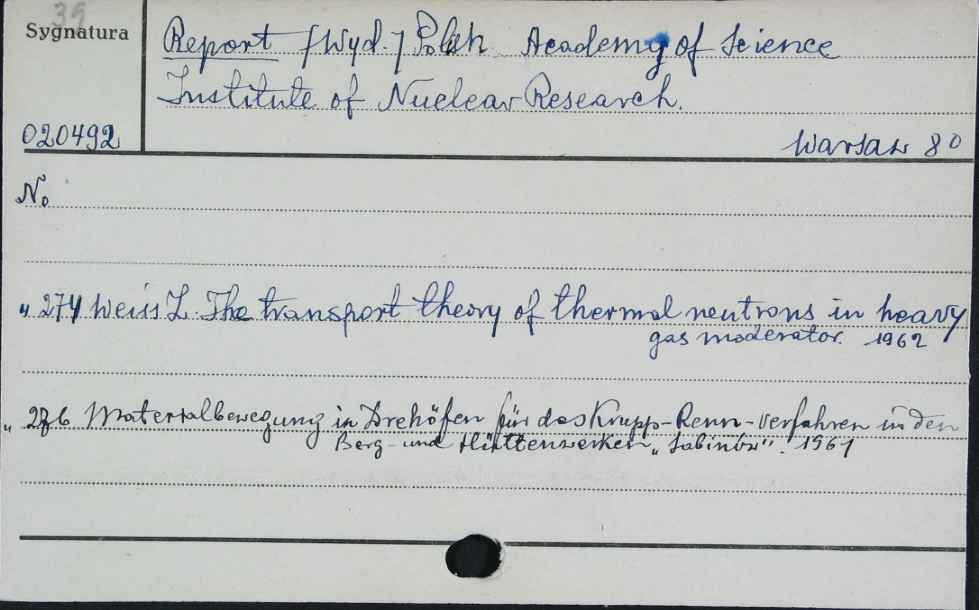 39
Sygnatura
Report [Wyd.] Polish Academy of Science
Institute of Nuclear Research.
020492
Warsaw 80
No
" 274 Weiss Z. The transport theory of thermal neutrons in heavy
gas moderator. 1962
" 276 Materialbewegung in Drehöfen für das Krupp-Renn-Verfahren in den
Berg- und Hüttenwerken „Sabinów". 1961